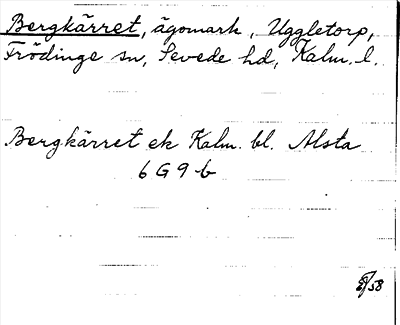 Bergkärret, ägomark, Uggletorp,
Frödinge sn, Sevede hd, Kalm. l.
Bergkärret ek Kalm. bl. Alsta
6 G 9 b
/58